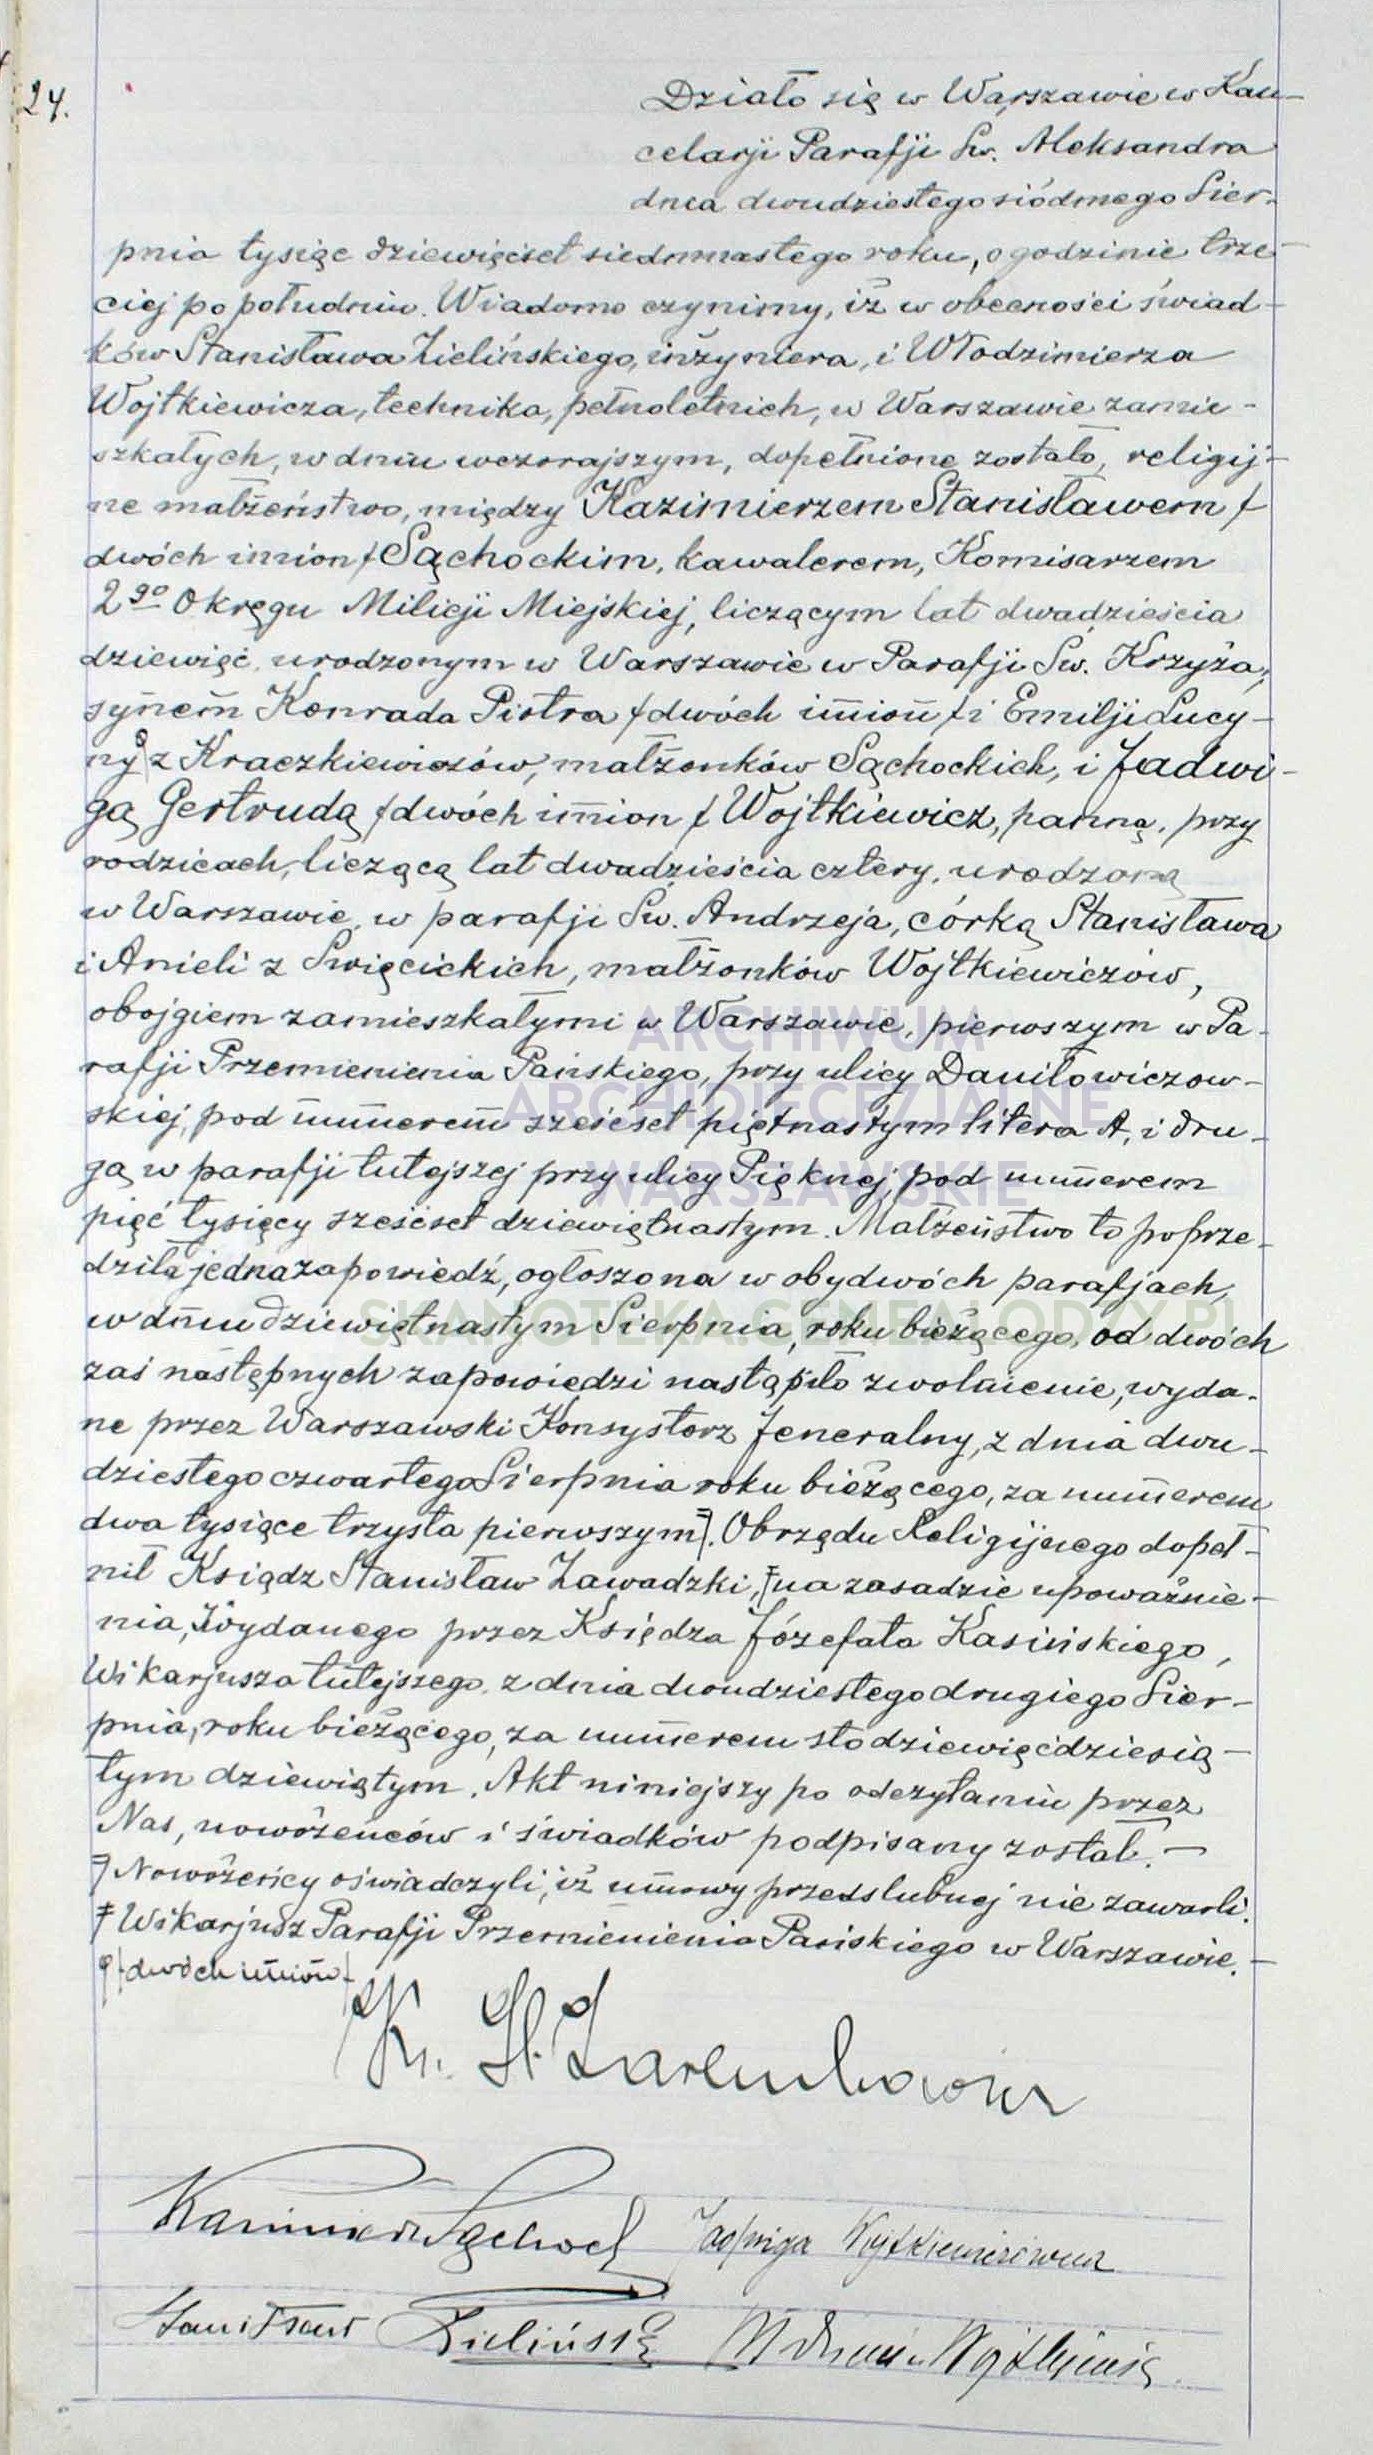 24.
Działo się w Warszawie w Kan-
celarji Parafji Św. Aleksandra
dnia dwudziestego siódmego Sier-
pnia tysiąc dziewięćset siedmnastego roku, o godzinie trze-
ciej po południu. Wiadomo czynimy, iż w obecności świad-
ków Stanisława Zielińskiego, inżyniera, i Włodzimierza
Wojtkiewicza, technika, pełnoletnich, w Warszawie zamie-
szkałych, w dniu wczorajszym, dopełnione zostało, religij-
ne małżeństwo, między Kazimierzem Stanisławem /
dwóch imion / Sąchockim, kawalerem, Komisarzem
2go Okręgu Milicji Miejskiej, liczącym lat dwadzieścia
dziewięć, urodzonym w Warszawie w Parafji Św. Krzyża,
synem Konrada Piotra / dwóch imion / i Emilji Lucy-
ny z Kraczkiewiczów, małżonków Sąchockich, i Jadwi-
gą Gertrudą / dwóch imion / Wojtkiewicz, panną, przy
rodzicach, liczącą lat dwadzieścia cztery, urodzoną
w Warszawie, w parafji Św. Andrzeja, córką Stanisława
i Anieli z Święcickich, małżonków Wojtkiewiczów,
obojgiem zamieszkałymi w Warszawie, pierwszym w Pa-
rafji Przemienienia Pańskiego, przy ulicy Daniłowiczow-
skiej, pod numerem sześćset piętnastym litera A, i dru-
gą w parafji tutejszej przy ulicy Pięknej, pod numerem
pięć tysięcy sześćset dziewiętnastym. Małżeństwo to poprze-
dziła jedna zapowiedź, ogłoszona w obydwóch parafjach,
w dniu dziewiętnastym Sierpnia, roku bieżącego, od dwóch
zaś następnych zapowiedzi nastąpiło zwolnienie, wyda-
ne przez Warszawski Konsystorz Jeneralny, z dnia dwu-
dziestego czwartego Sierpnia roku bieżącego, za numerem
dwa tysiące trzysta pierwszym =/. Obrzędu Religijnego dopeł-
nił Ksiądz Stanisław Zawadzki, ≠/ na zasadzie upoważnie-
nia, wydanego przez Księdza Józefata Kasińskiego,
Wikarjusza tutejszego, z dnia dwudziestego drugiego Sier-
pnia, roku bieżącego, za numerem sto dziewięćdziesią-
tym dziewiątym. Akt niniejszy po odczytaniu przez
Nas, nowożeńców i świadków podpisany został. —
=/ Nowożeńcy oświadczyli, iż umowy przedślubnej nie zawarli.
≠ Wikarjusz Parafji Przemienienia Pańskiego w Warszawie. —
/ dwóch imion /
Kazimierz Sąchocki Jadwiga Wojtkiewiczówna
Stanisław Zieliński Wojtkiewicz
ARCHIWUM
ARCHIDIECEZJALNE
WARSZAWSKIE
SKANOTEKA.GENEALODZY.PL